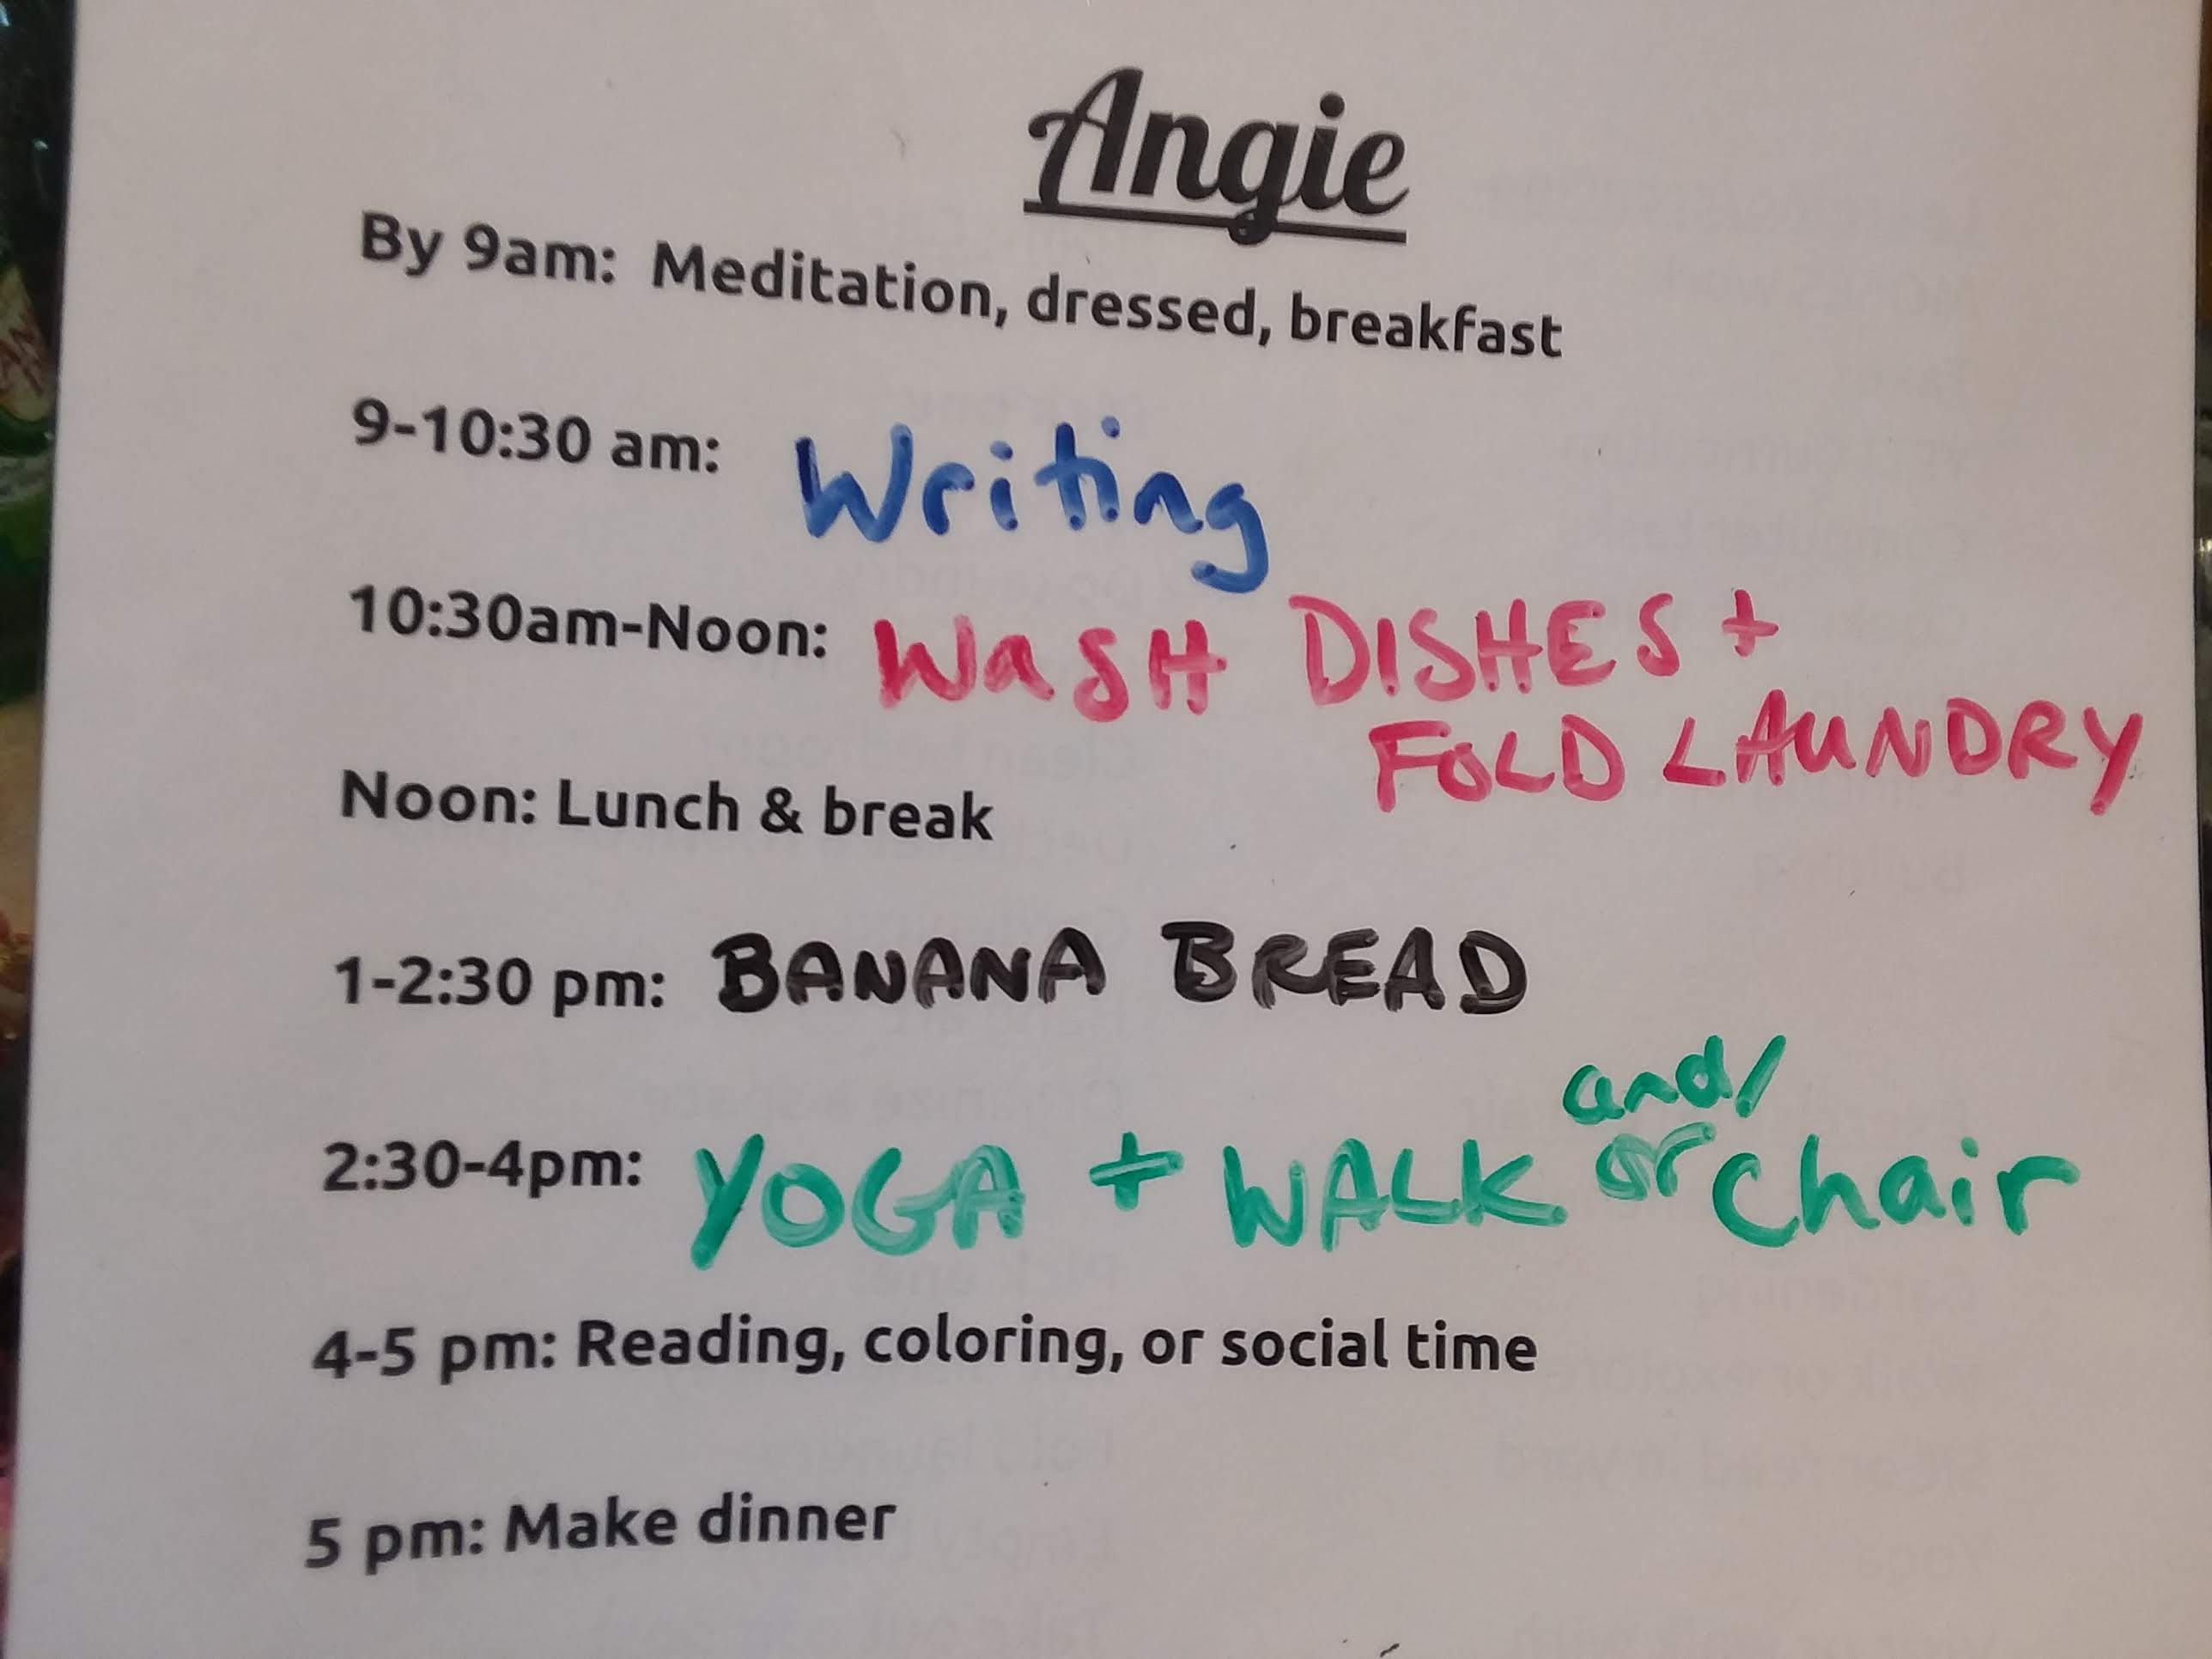 Angie
By 9am: Meditation, dressed, breakfast
9-10:30 am: Writing
10:30am-Noon: WaSH DISHES +
FOLD LAUNDRY
Noon: Lunch & break
1-2:30 pm: BANANA BREAD
and/
2:30-4pm: YOGA + WALK or Chair
4-5 pm: Reading, coloring, or social time
5 pm: Make dinner